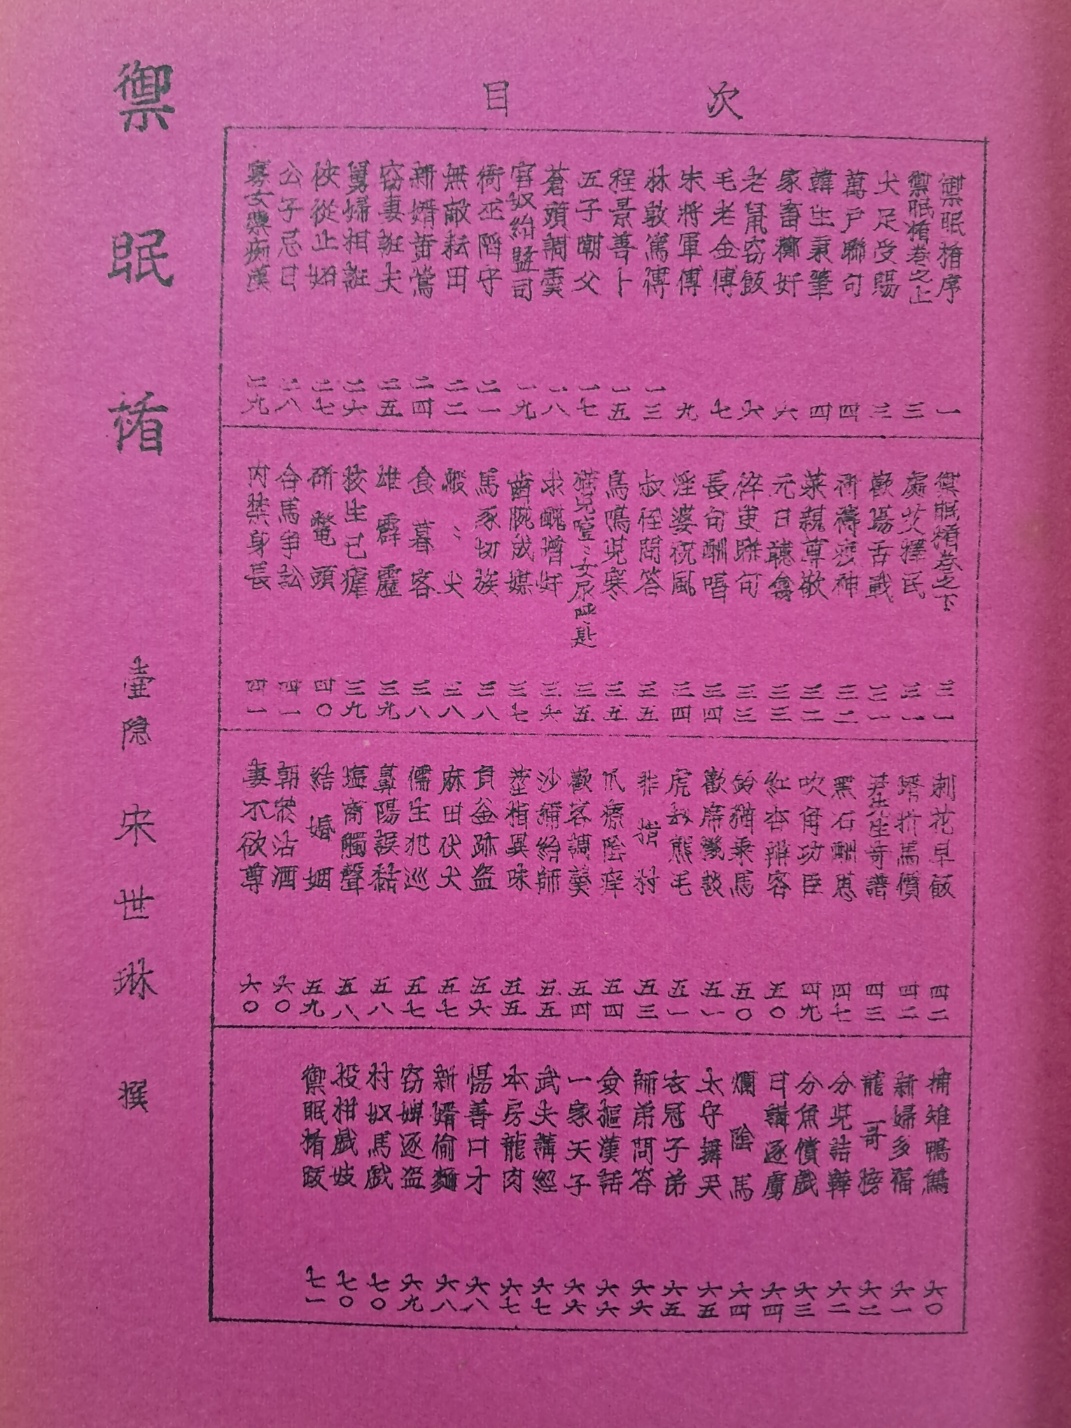 次目
禦眠楯序 一
禦眠楯卷之上 三
犬足受賜 三
萬戶聯句 四
韓生秉筆 四
家畜奸 六
老鼠窃飯 六
毛老金傳 七
朱將軍傳 九
林敦篤傳 一三
程景善卜 一五
五子嘲父 一七
蒼頭調羹 一八
官奴紿豎司 一九
衛巫陷守 二一
無敵耘田 二二
新婿鶯 二四
窃妻誑夫 二五
舅婦相誑 二六
侠從止妬 二七
公子忌日 二八
寡女禦痴漢 二九
禦眠楯卷之下 三一
處女擇民 三一
歡場舌戰 三一
祈禱疫神 三二
萊親尊敬 三二
元日聽禽 三三
倅吏聯句 三三
長句酬唱 三四
淫婆玩風 三四
叔侄問答 三五
鳥鳴児寒 三五
猫児室〻女尿匙 三五
求醜奸 三六
齒腕成媒 三七
馬豕切族 三八
般〻犬 三八
食暮客 三八
雄霹靂 三九
校生已瘧 三九
研鼈頭 四〇
合馬爭訟 四一
內禁身長 四一
刺花早飯 四二
婿折馬價 四二
生奇譜 四三
黑石酬恩 四七
吹角功臣 四九
紅杏辨客 五〇
鈴猫乘馬 五〇
歡席譏談 五一
虎奴熊毛 五一
非指村 五三
爪療陰痒 五四
歡客調羹 五四
沙紿師 五五
楚楷異味 五五
負釜跡盜 五六
麻田伏犬 五七
儒生犯巡 五七
鼻陽誤黏 五八
塩商觸聲 五八
結婚姻 五九
朝衆沽酒 六〇
妻不欲尊 六〇
捕雉鴨鷉 六〇
新婦多福 六一
龍哥榜 六二
分児詰鞾 六二
分魚償戲 六三
日講逐虜 六四
爛陰馬 六四
太守舞哭 六五
衣冠子弟 六五
師弟問答 六六
僉樞漢話 六六
一家天子 六六
武夫講經 六七
本房龍肉 六七
惕善口才 六八
新婿偷麵 六八
窃婢逐盜 六九
村奴馬戲 七〇
投柑戲妓 七〇
禦眠楯跋 七一
禦眠楯
壺隐 宋世琳 撰